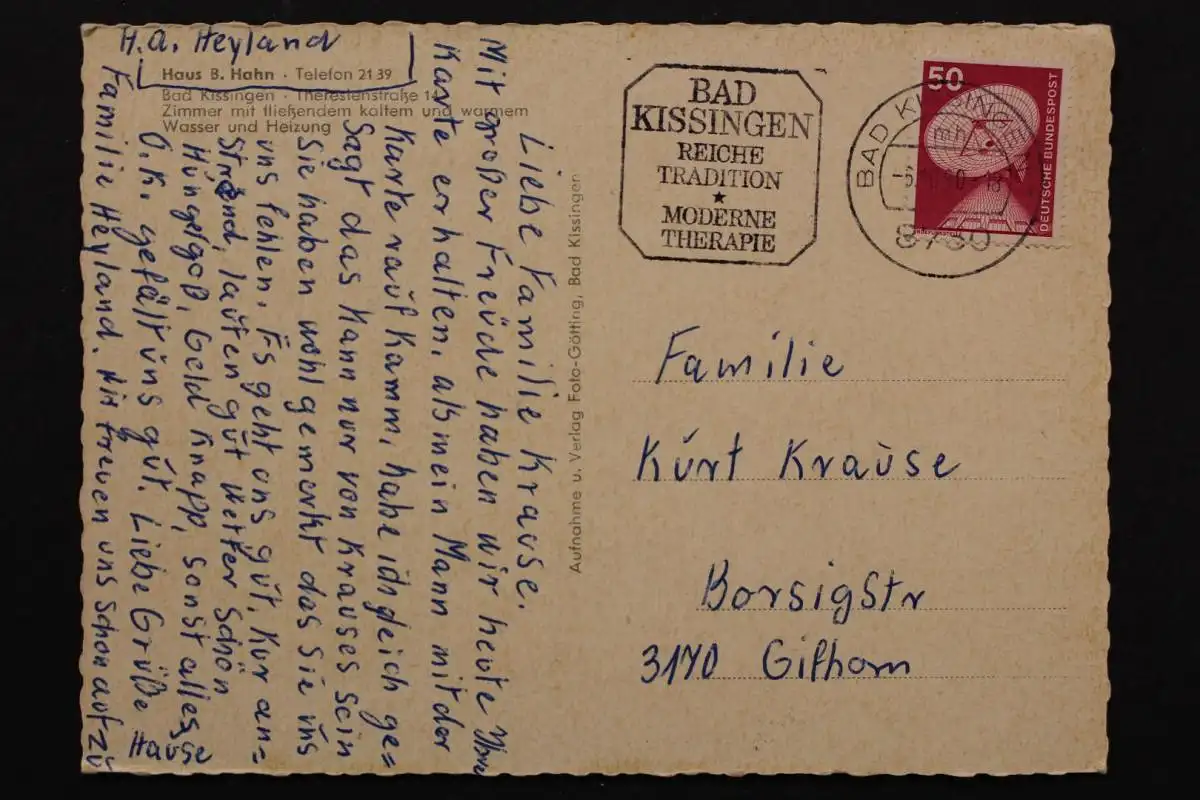 H. A. Heyland
Haus B. Hahn · Telefon 21 39
Bad Kissingen · Theresienstraße 14
Zimmer mit fließendem kaltem und warmem
Wasser und Heizung
Liebe Familie Krause.
Mit großer Freude haben wir heute Ihre
Karte erhalten, als mein Mann mit der
Karte rauf kamm, habe ich gleich ge=
sagt das kann nur von Krauses sein
Sie haben wohl gemerkt das Sie uns
uns fehlen. Es geht uns gut. Kur an=
strend, laufen gut Wetter schön
Hüngelgoß, Geld knapp, sonst alles
O.K. gefält uns gut. Liebe Grüße
Familie Heyland. Wir freuen uns schon auf zu
Hause
Aufnahme u. Verlag Foto-Götting, Bad Kissingen
BAD
KISSINGEN
REICHE
TRADITION
★
MODERNE
THERAPIE
BAD KISSINGEN
8730
50
DEUTSCHE BUNDESPOST
Familie
Kurt Krause
Borsigstr
3170 Gifhorn